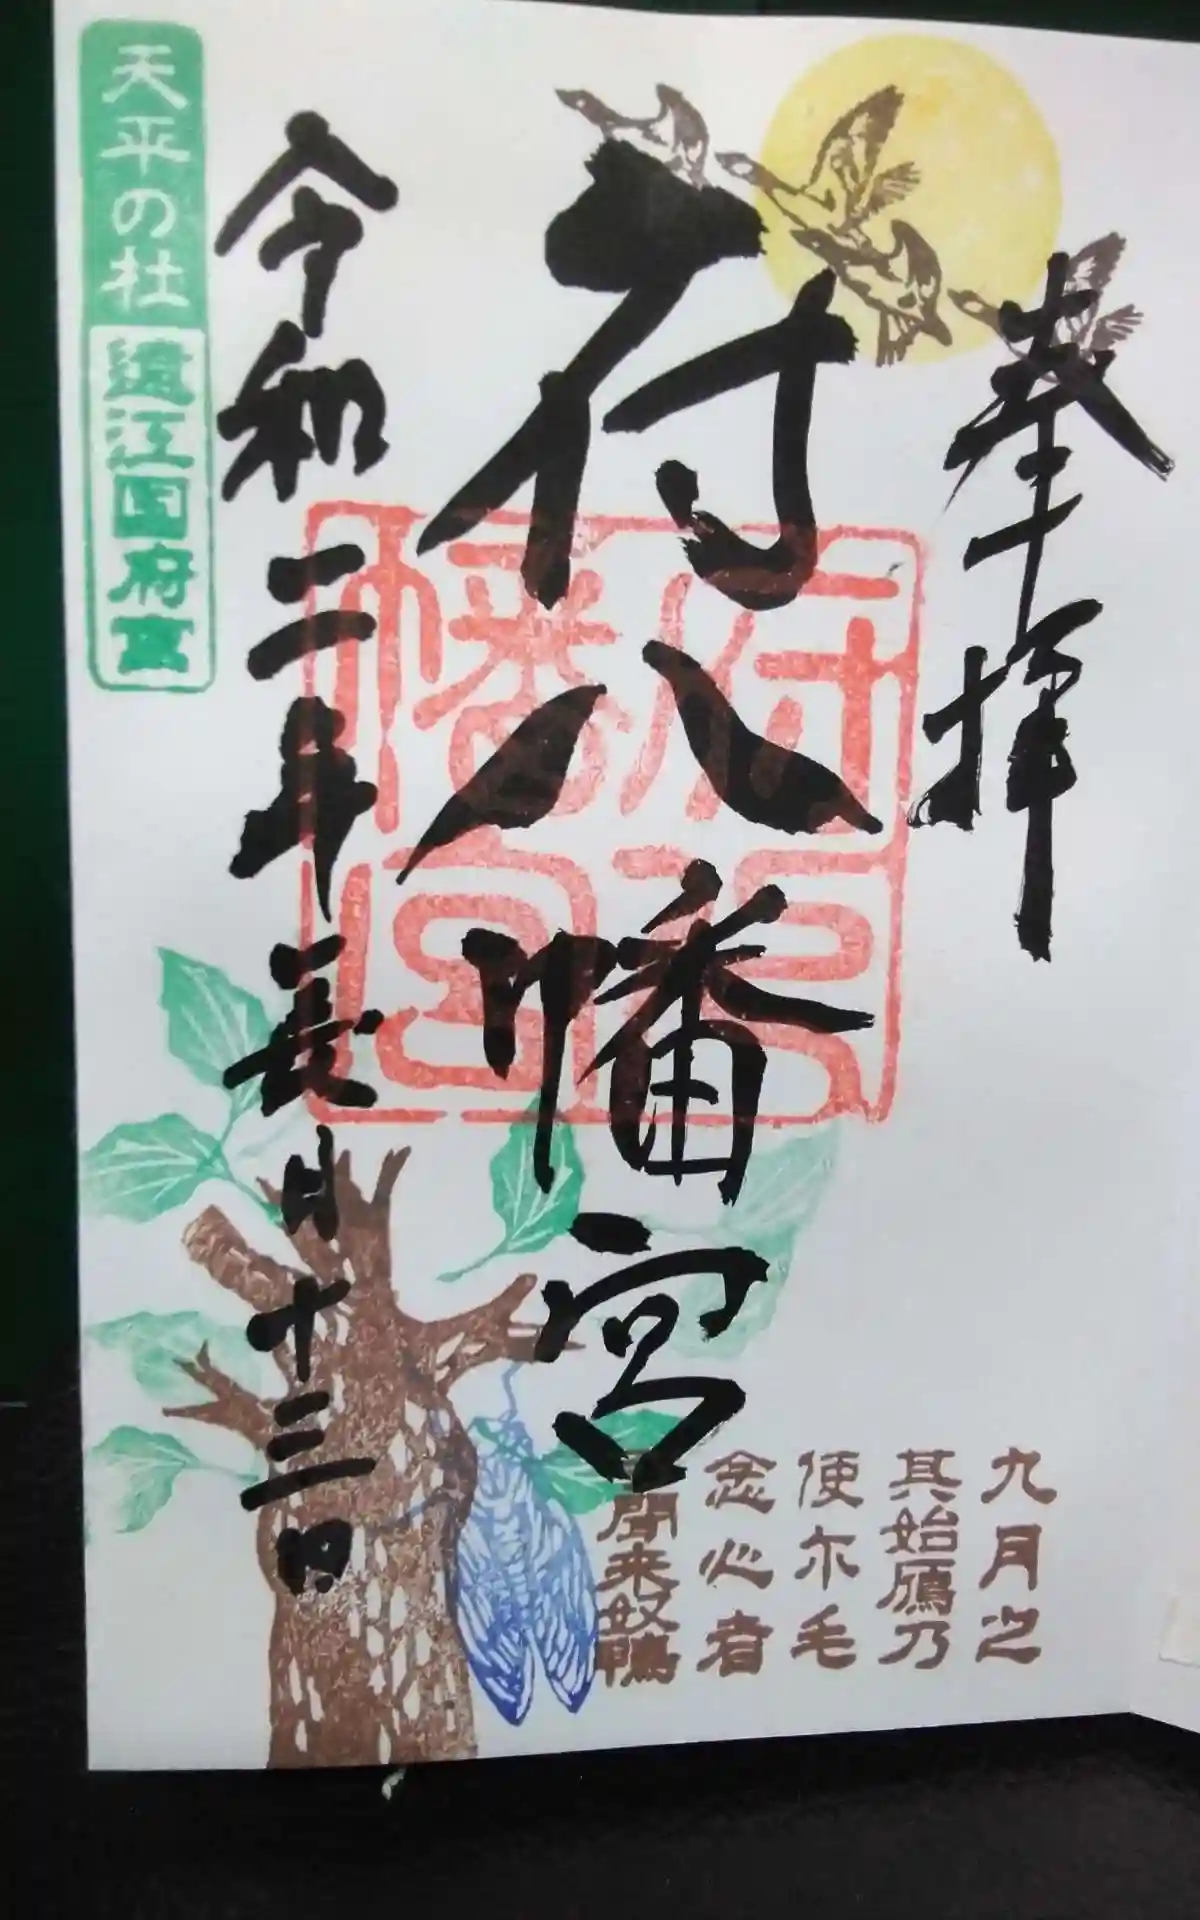 奉拝
府八幡宮
府八
幡宮
令和二年長月十三日
天平の杜
遠江国府宮
九月之
其始鴈乃
使尓毛
念心者
聞来奴鴨